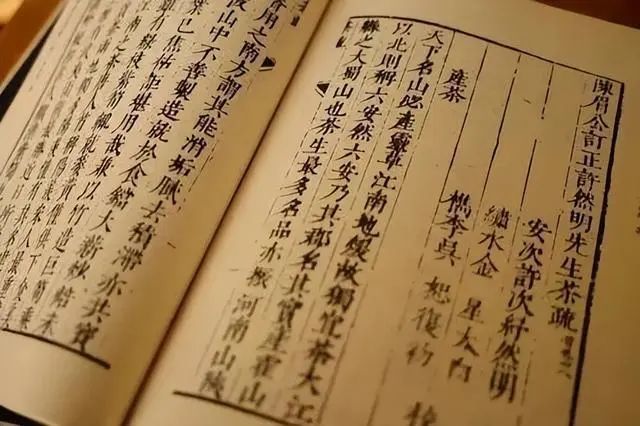 陳眉公訂正許然明先生茶疏
安次許次紓然明
繡水金 星太白
檇李吳 恕復
產茶
天下名山必產靈草江南地暖故獨宜茶大江
以北則稱六安然六安乃其郡名其實產霍山
縣之大蜀山也茶生最多名品亦振河南山陝
皆用之南方謂其能消垢膩去積滯亦共寶
彼山中不善製造就於食鐺大薪炒焙未
業已焦枯詎堪用哉兼以竹造巨笱乘